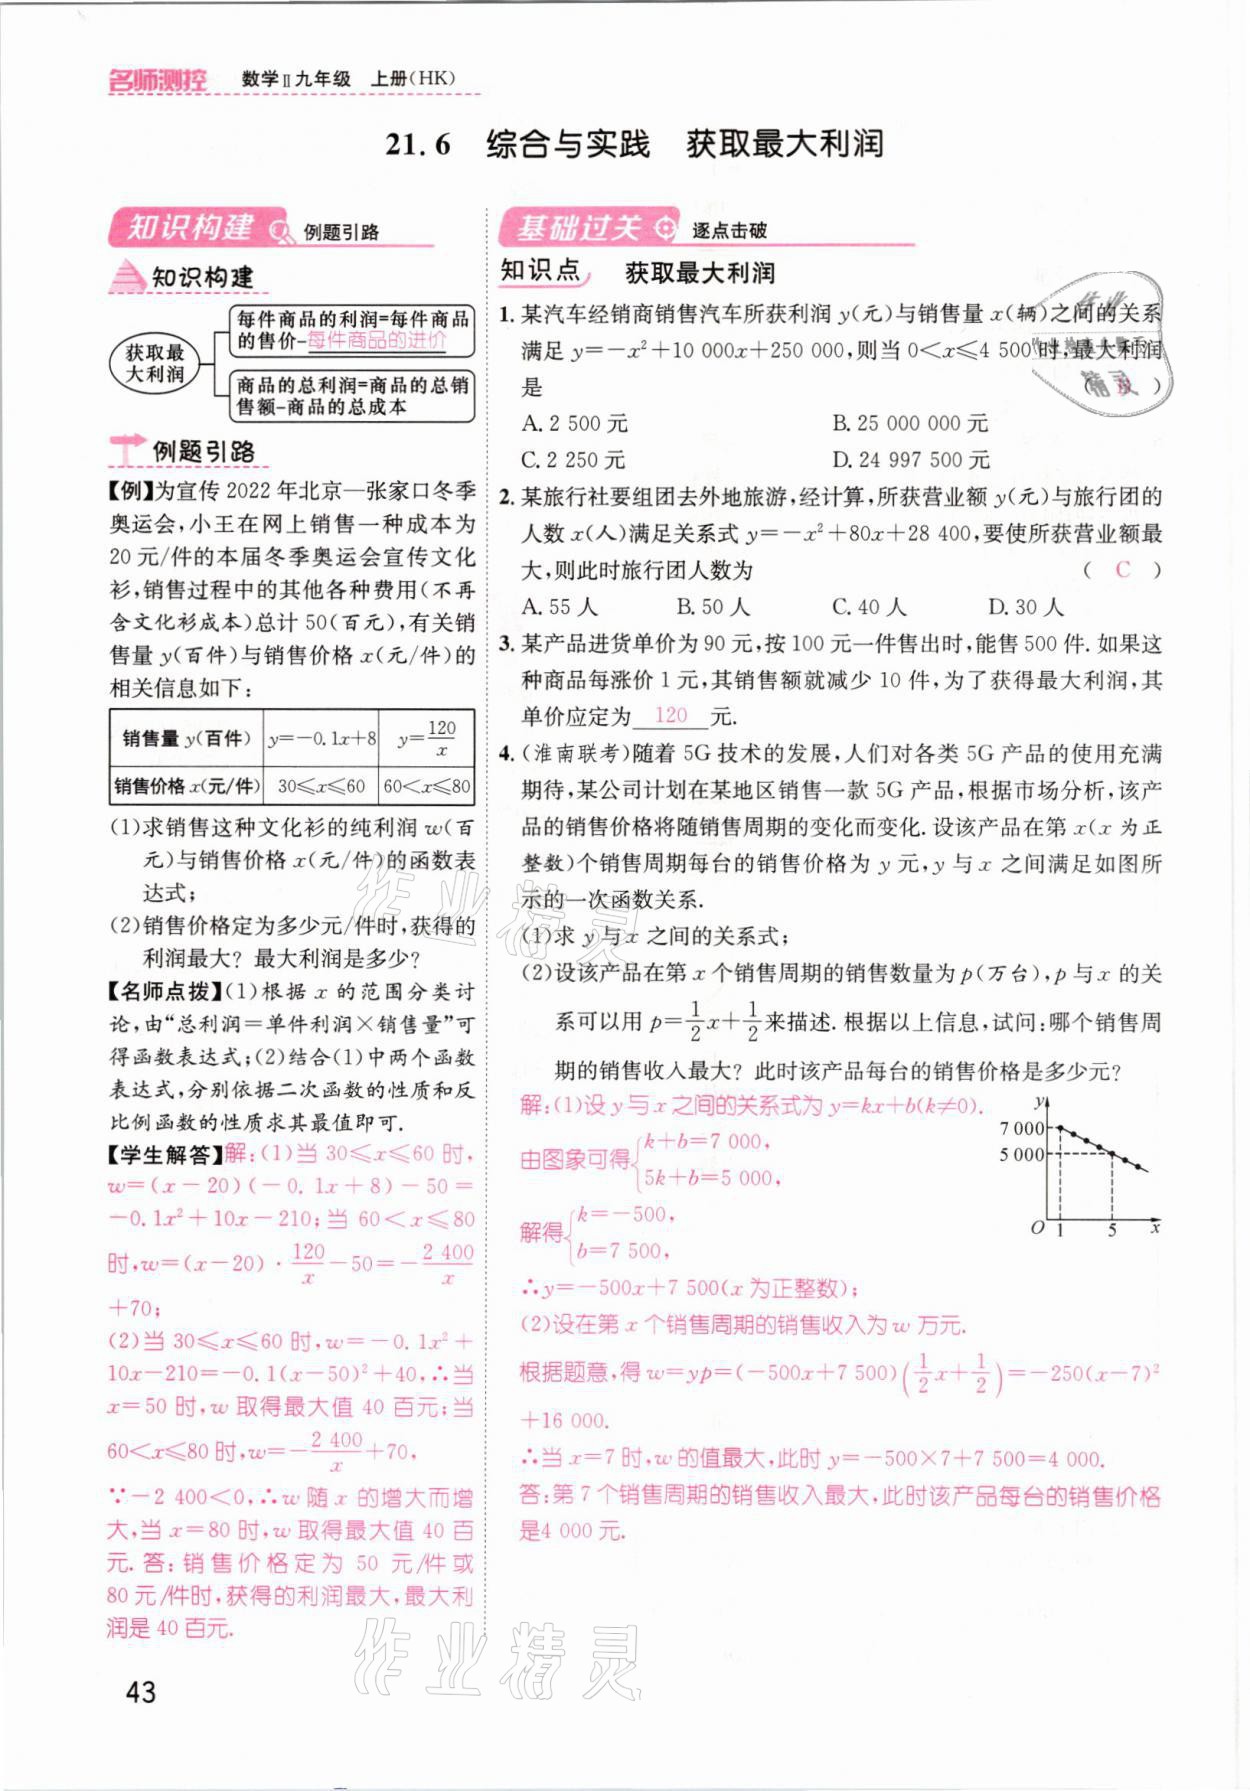 名师测控 数学Ⅱ九年级 上册(HK)
21.6 综合与实践 获取最大利润
知识构建 例题引路
知识构建
获取最大利润
每件商品的利润=每件商品
的售价-每件商品的进价
商品的总利润=商品的总销
售额-商品的总成本
例题引路
【例】为宣传 2022 年北京—张家口冬季
奥运会,小王在网上销售一种成本为
20 元/件的本届冬季奥运会宣传文化
衫,销售过程中的其他各种费用(不再
含文化衫成本)总计 50(百元),有关销
售量 y(百件)与销售价格 x(元/件)的
相关信息如下:
销售量 y(百件) y=-0.1x+8 y=120/x
销售价格 x(元/件) 30≤x≤60 60<x≤80
(1)求销售这种文化衫的纯利润 w(百
元)与销售价格 x(元/件)的函数表
达式;
(2)销售价格定为多少元/件时,获得的
利润最大? 最大利润是多少?
【名师点拨】(1)根据 x 的范围分类讨
论,由“总利润=单件利润×销售量”可
得函数表达式;(2)结合(1)中两个函数
表达式,分别依据二次函数的性质和反
比例函数的性质求其最值即可.
【学生解答】解:(1)当 30≤x≤60 时,
w=(x-20)(-0.1x+8)-50=
-0.1x²+10x-210;当 60<x≤80
时,w=(x-20)·120/x-50=-2 400/x
+70;
(2)当 30≤x≤60 时,w=-0.1x²+
10x-210=-0.1(x-50)²+40,∴当
x=50 时,w 取得最大值 40 百元;当
60<x≤80 时,w=-2 400/x+70,
∵-2 400<0,∴w 随 x 的增大而增
大,当 x=80 时,w 取得最大值 40 百
元.答:销售价格定为 50 元/件或
80 元/件时,获得的利润最大,最大利
润是 40 百元.
基础过关 逐点击破
知识点 获取最大利润
1. 某汽车经销商销售汽车所获利润 y(元)与销售量 x(辆)之间的关系
满足 y=-x²+10 000x+250 000,则当 0<x≤4 500 时,最大利润
是 ( )
A. 2 500 元 B. 25 000 000 元
C. 2 250 元 D. 24 997 500 元
2. 某旅行社要组团去外地旅游,经计算,所获营业额 y(元)与旅行团的
人数 x(人)满足关系式 y=-x²+80x+28 400,要使所获营业额最
大,则此时旅行团人数为 ( C )
A. 55 人 B. 50 人 C. 40 人 D. 30 人
3. 某产品进货单价为 90 元,按 100 元一件售出时,能售 500 件. 如果这
种商品每涨价 1 元,其销售额就减少 10 件,为了获得最大利润,其
单价应定为 120 元.
4. (淮南联考)随着 5G 技术的发展,人们对各类 5G 产品的使用充满
期待,某公司计划在某地区销售一款 5G 产品,根据市场分析,该产
品的销售价格将随销售周期的变化而变化. 设该产品在第 x(x 为正
整数)个销售周期每台的销售价格为 y 元,y 与 x 之间满足如图所
示的一次函数关系.
(1)求 y 与 x 之间的关系式;
(2)设该产品在第 x 个销售周期的销售数量为 p(万台),p 与 x 的关
系可以用 p=1/2x+1/2来描述. 根据以上信息,试问:哪个销售周
期的销售收入最大? 此时该产品每台的销售价格是多少元?
解:(1)设 y 与 x 之间的关系式为 y=kx+b(k≠0).
由图象可得{k+b=7 000,
5k+b=5 000,
解得{k=-500,
b=7 500,
∴y=-500x+7 500(x 为正整数);
y
7 000
5 000
O 1 5 x
(2)设在第 x 个销售周期的销售收入为 w 万元.
根据题意,得 w=yp=(-500x+7 500)(1/2x+1/2)=-250(x-7)²
+16 000.
∴当 x=7 时,w 的值最大,此时 y=-500×7+7 500=4 000.
答:第 7 个销售周期的销售收入最大,此时该产品每台的销售价格
是4 000 元.
作业精灵
作业精灵
43